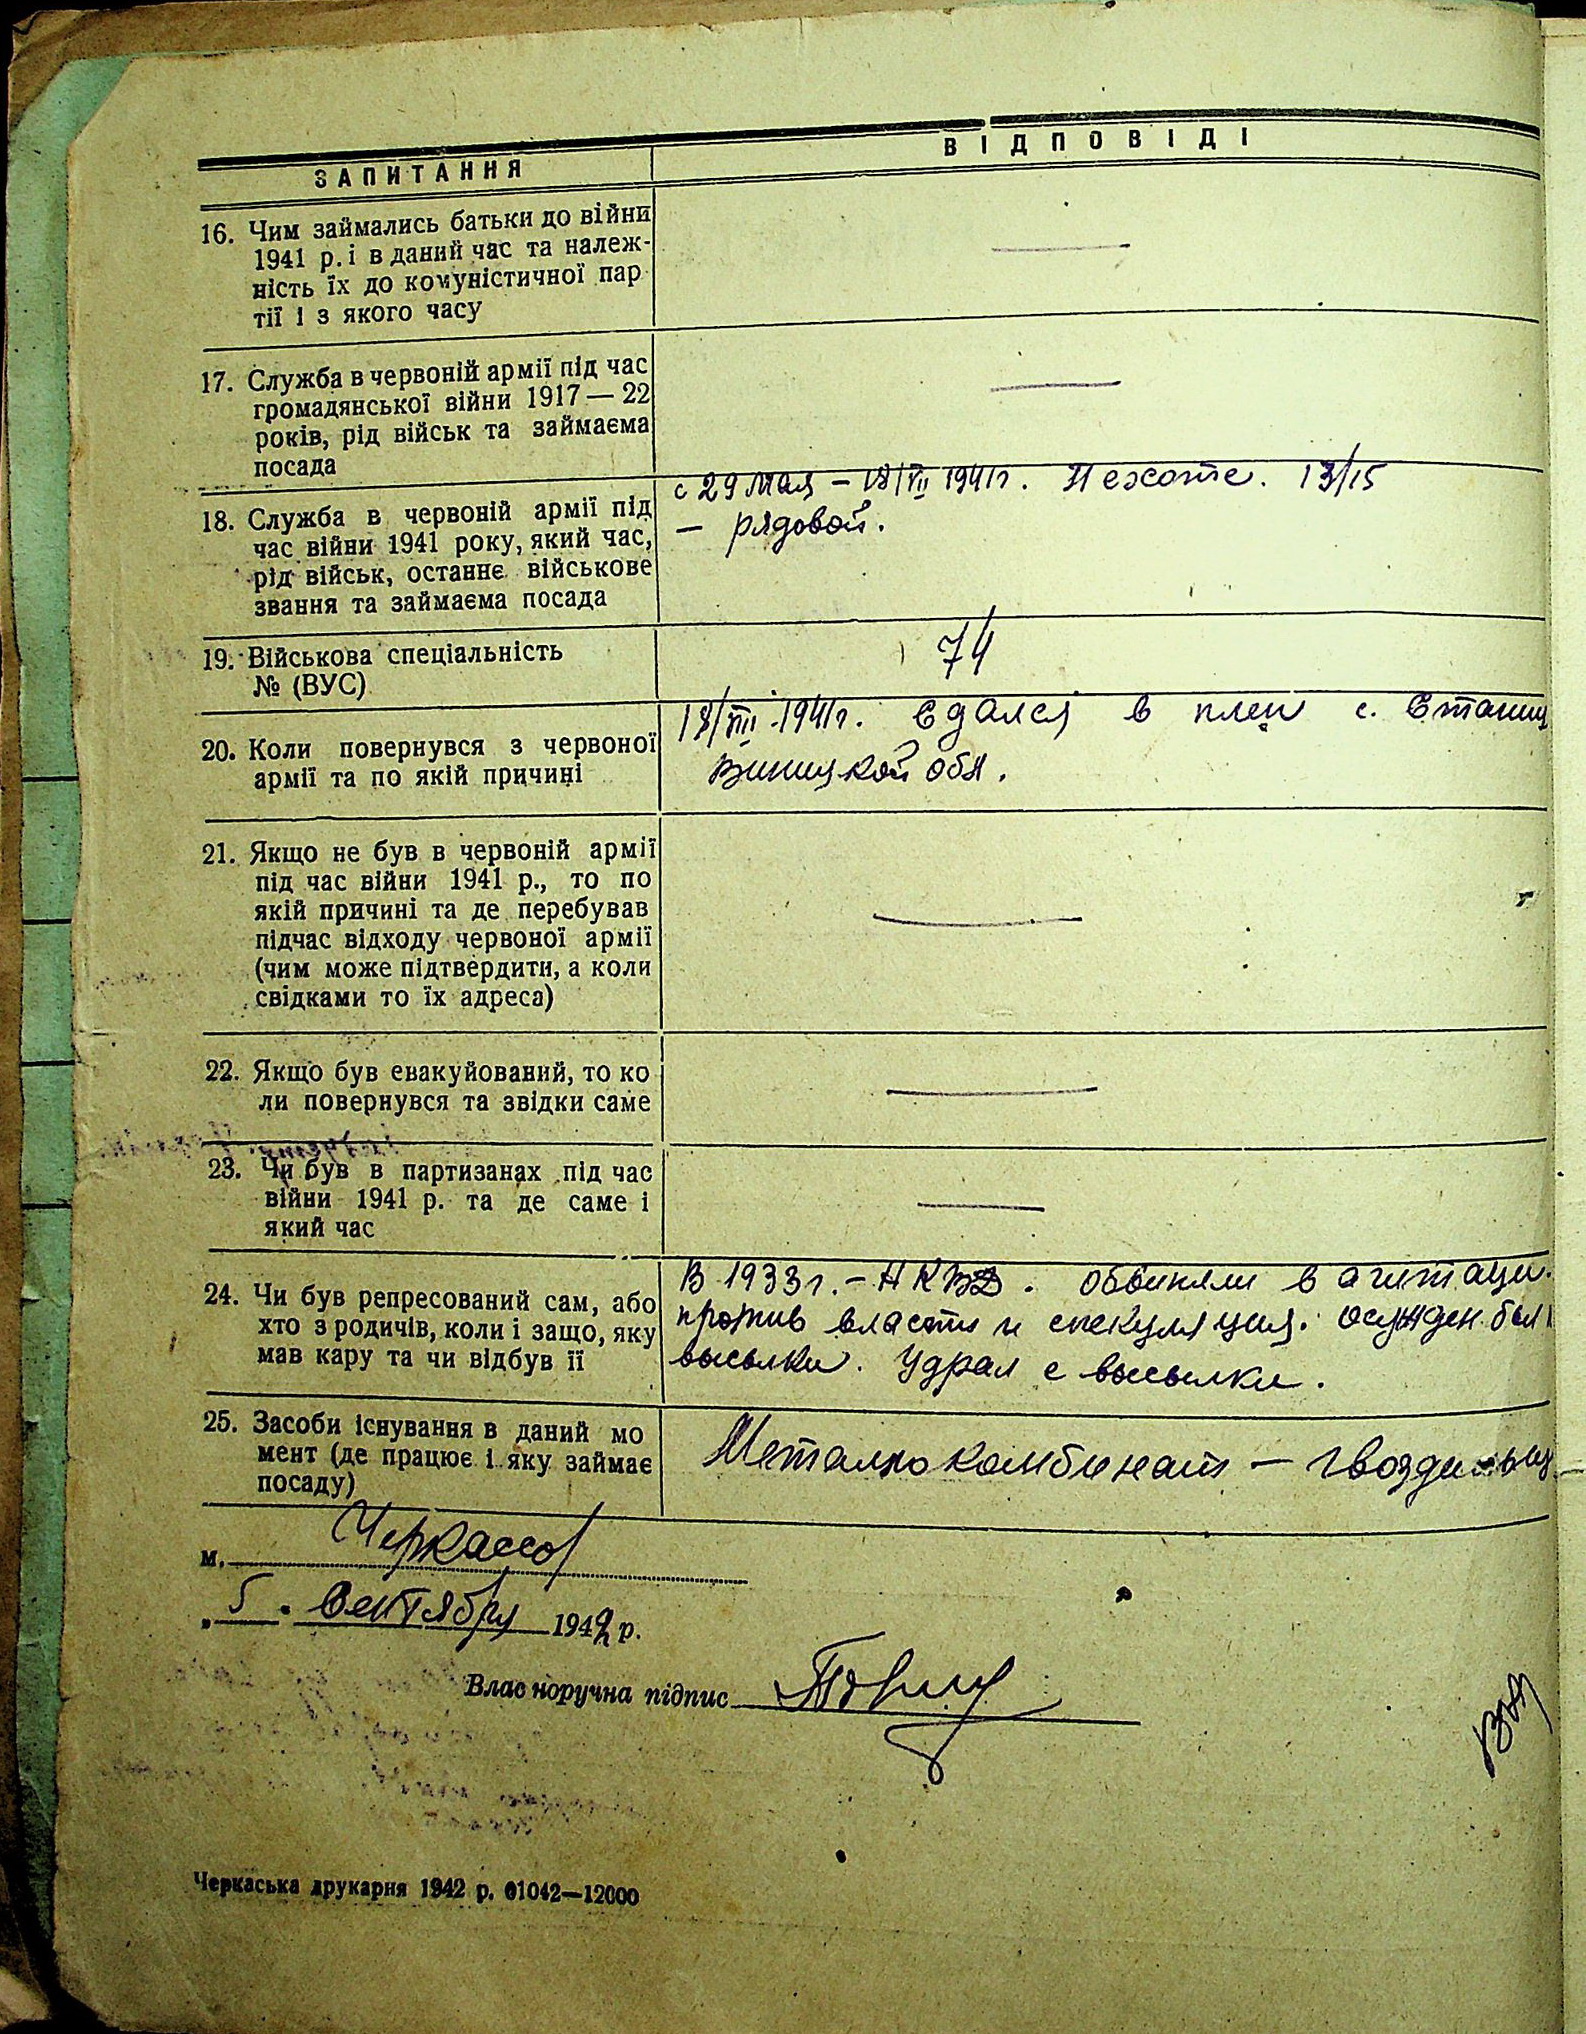 ЗАПИТАННЯ
ВІДПОВІДІ
16. Чим займались батьки до війни
1941 р. і в даний час та належ-
ність їх до комуністичної пар
тії і з якого часу
—
17. Служба в червоній армії під час
громадянської війни 1917 — 22
років, рід військ та займаєма
посада
—
18. Служба в червоній армії під
час війни 1941 року, який час,
рід військ, останнє військове
звання та займаєма посада
с 29 мая – 18/VII 1941 г. Пехоте. 13/15
— рядовой.
19. Військова спеціальність
№ (ВУС)
74
20. Коли повернувся з червоної
армії та по якій причині
18/VIII 1941 г. Сдался в плен с.
Виницкой обл.
21. Якщо не був в червоній армії
під час війни 1941 р., то по
якій причині та де перебував
підчас відходу червоної армії
(чим може підтвердити, а коли
свідками то їх адреса)
—
22. Якщо був евакуйований, то ко
ли повернувся та звідки саме
—
23. Чи був в партизанах під час
війни 1941 р. та де саме і
який час
—
24. Чи був репресований сам, або
хто з родичів, коли і защо, яку
мав кару та чи відбув її
В 1933 г. – НКВД. обвиняли в агитаци.
против власти и спекуляция. осужден был
высылки. Удрал с высылки.
25. Засоби існування в даний мо
мент (де працює і яку займає
посаду)
Металлокомбинат —
м. Черкассы
„ 5 „ Сентября 1942 р.
Власноручна підпис
Черкаська друкарня 1942 р. 01042—12000